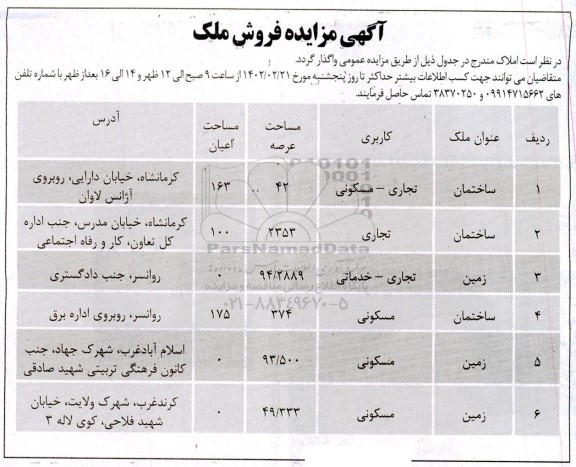 آگهی مزایده فروش ملک
در نظر است املاک مندرج در جدول ذیل از طریق مزایده عمومی واگذار گردد.
متقاضیان می توانند جهت کسب اطلاعات بیشتر حداکثر تا روز پنجشنبه مورخ ۱۴۰۲/۰۲/۲۱ از ساعت ۹ صبح الی ۱۲ ظهر و ۱۴ الی ۱۶ بعداز ظهر با شماره تلفن
های ۰۹۹۱۴۷۱۵۶۶۲ و ۳۸۳۷۰۲۵۰ تماس حاصل فرمایند.
ردیف عنوان ملک کاربری مساحت عرصه مساحت اعیان آدرس
۱ ساختمان تجاری – مسکونی ۴۲ ۱۶۳ کرمانشاه، خیابان دارایی، روبروی
آژانس لاوان
۲ ساختمان تجاری ۲۳۵۳ ۱۰۰ کرمانشاه، خیابان مدرس، جنب اداره
کل تعاون، کار و رفاه اجتماعی
۳ زمین تجاری – خدماتی ۹۴/۲۸۸۹ ۰ روانسر، جنب دادگستری
۴ ساختمان مسکونی ۳۷۴ ۱۷۵ روانسر، روبروی اداره برق
۵ زمین مسکونی ۹۳/۵۰۰ ۰ اسلام آبادغرب، شهرک جهاد، جنب
کانون فرهنگی تربیتی شهید صادقی
۶ زمین مسکونی ۴۹/۳۳۳ ۰ کرندغرب، شهرک ولایت، خیابان
شهید فلاحی، کوی لاله ۳
ParsNamadData
۰۲۱-۸۸۳۴۹۶۷۰-۵